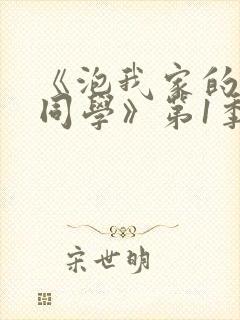 《泡我家的
同學》第1季
宋世明